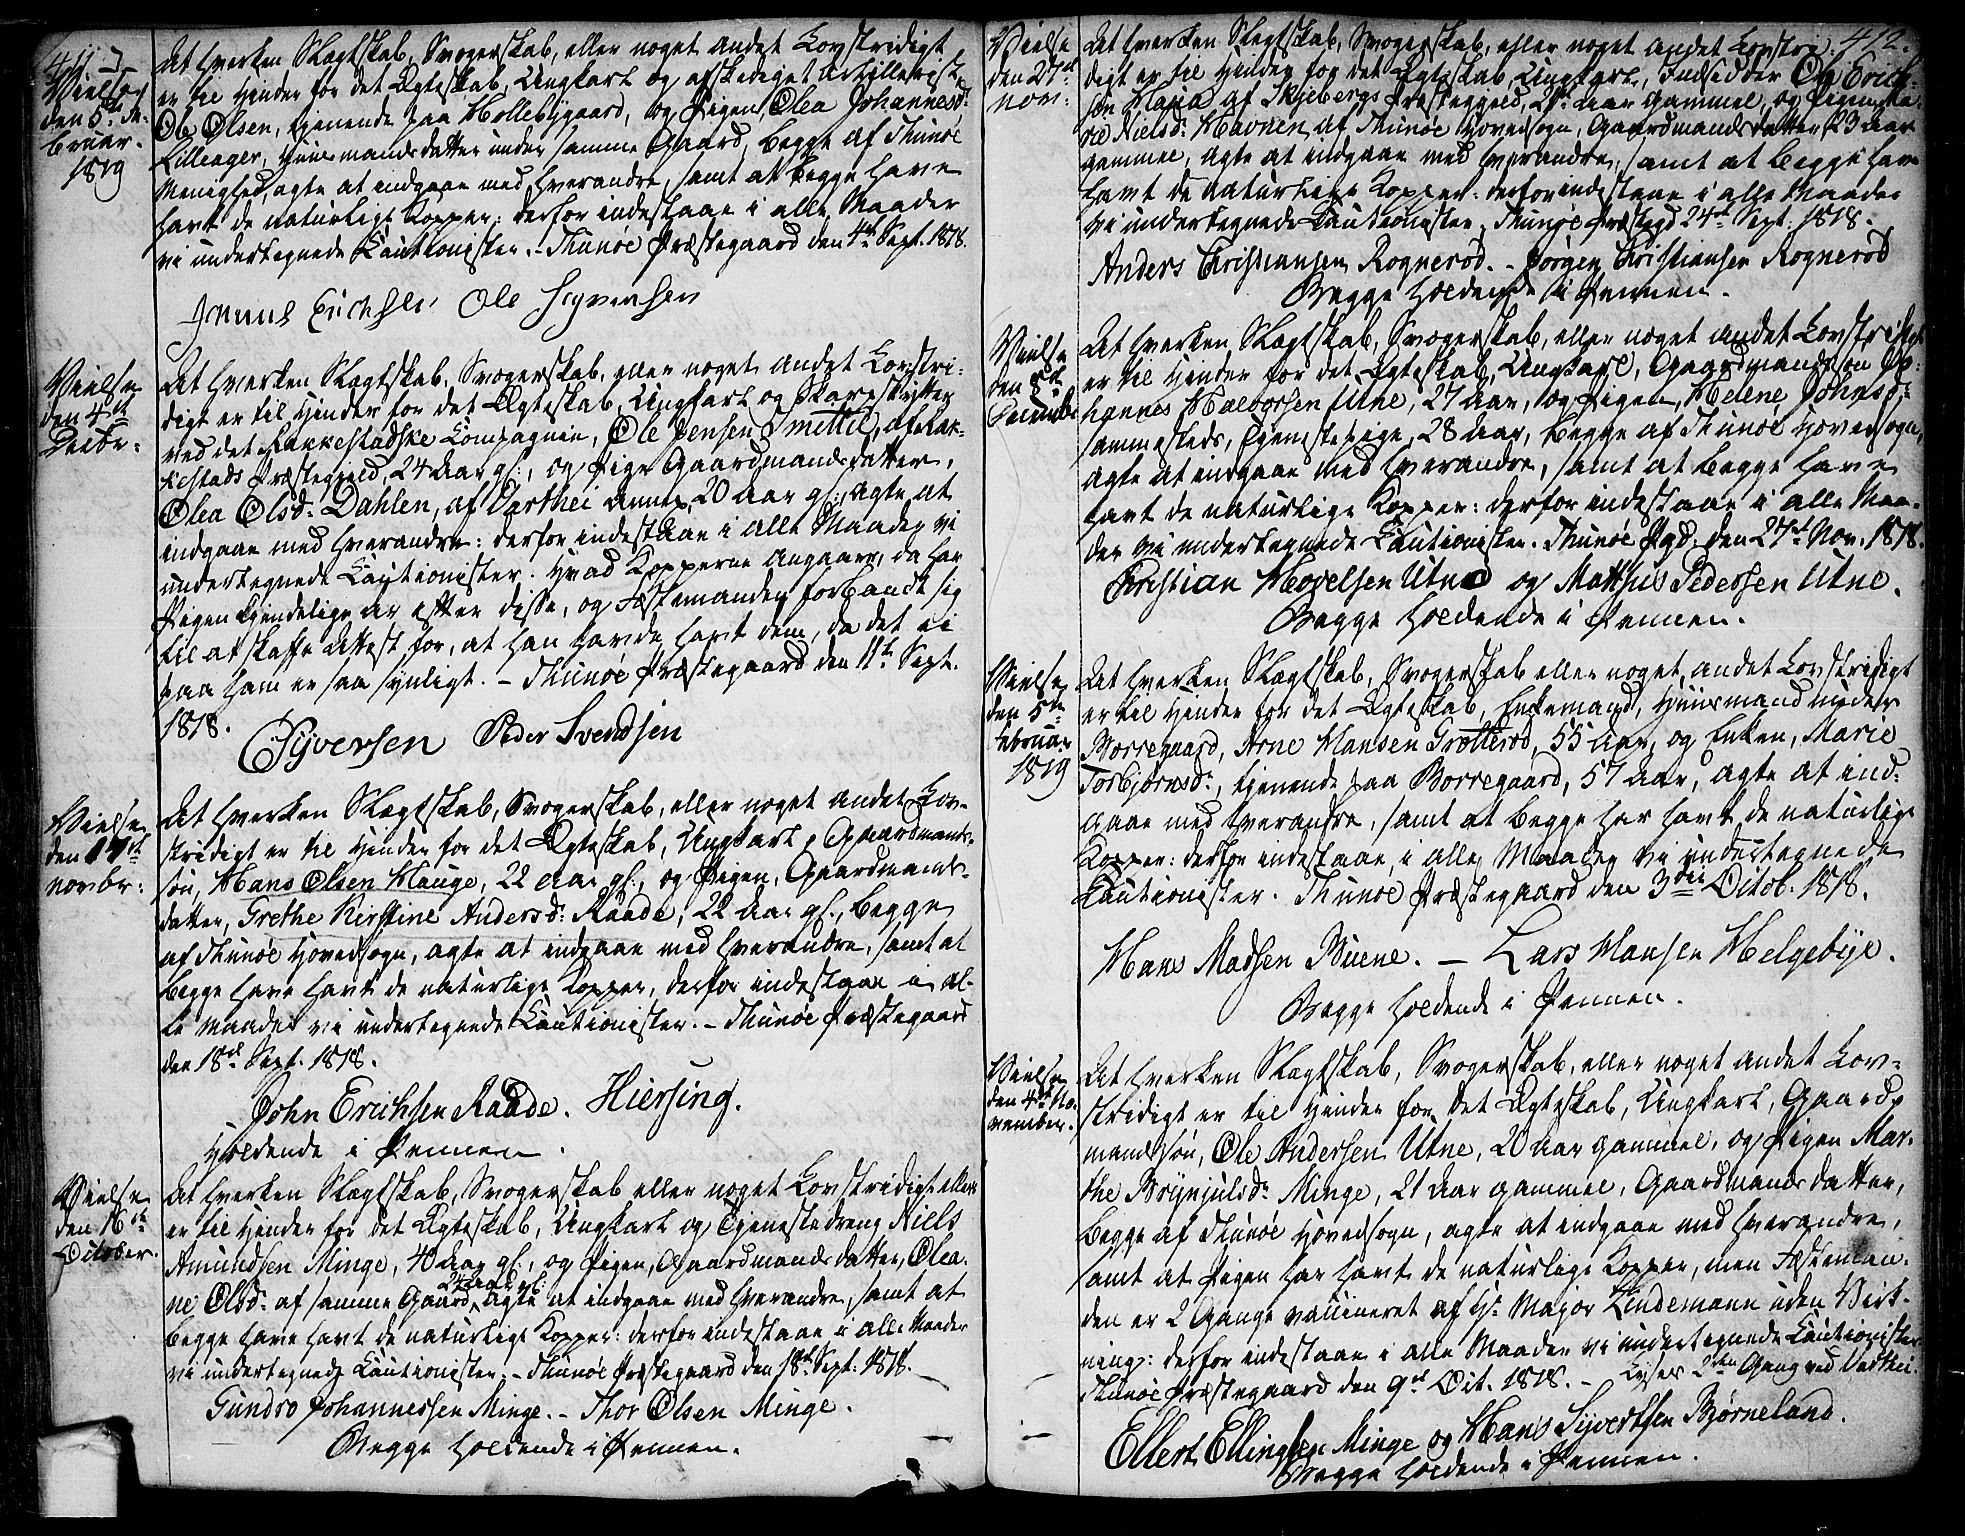 411
Vielse
den 5te Fe-
bruar.
1819
At hverken Slægtskab, Svogerskab, eller noget andet Lovstridigt
er til Hinder for det Ægteskab, Ungkarl og afskediget Artillerist,
Ole Olsen, tjenende paa Hollebygaard, og Pigen, Olea Johannesd:
Lilleager, Huusmandsdatter under samme Gaard, begge af Thunøe
Menighed, agte at indgaae med hverandre, samt at begge have
havt de naturlige Kopper: derfor indestaae i alle Maader
vi undertegnede Cautionister. - Thunøe Præstegaard den 4de Sept. 1818.
Ole Syversen
Vielse
den 4de
Decbr.
At hverken Slægtskab, Svogerskab, eller noget andet Lovstri-
digt er til Hinder for det Ægteskab, Ungkarl og Skarpskytter
ved det Rakkestadske Compagnie, Ole Jensen Smettil, af Rak-
kestads Præstegield, 24 Aar gl:, og Pige Gaardmandsdatter,
Olea Olsd: Dahlen, af Varthei Annex, 20 Aar gl:, agte at
indgaae med hverandre: derfor indestaae i alle Maader vi
undertegnede Cautionister. Hvad Kopperne angaaer, da har
Pigen kjendelige ar efter disse, og Fæstemanden forbandt sig
til at skaffe Attest for, at han havde havt dem, da det ei
paa ham er saa synligt. - Thunøe Præstegaard den 11te Sept.
1818.
Syversen Peder Svendsen
Vielse
den
novbr:
At hverken Slægtskab, Svogerskab, eller noget andet Lov-
stridigt er til Hinder for det Ægteskab, Ungkarl, Gaardmands-
søn, Hans Olsen Hauge, 22 Aar gl:, og Pigen, Gaardmands-
datter, Grethe Kirstine Andersd: Raade, 22 Aar gl., begge
af Thunøe Hovedsogn, agte at indgaae med hverandre, samt at
begge have havt de naturlige Kopper, derfor indestaae i al-
le Maader vi undertegnede Cautionister. - Thunøe Præstegaard
den 18de Sept. 1818.
John Erichsen Raade. Hiersing.
Holdende i Pennen.
Vielse
den 16de
October.
At hverken Slægtskab, Svogerskab eller noget Lovstridigt ellers
er til Hinder for det Ægteskab, Ungkarl og Tjenestedreng Niels
Amundsen Minge, 40 Aar gl:, og Pigen, Gaardmandsdatter, Olea-
24 Aar gl:
ne Olsd: af samme Gaard, agte at indgaae med hverandre, samt at
begge have havt de naturlige Kopper: derfor indestaae i alle Maader
vi undertegnede Cautionister. - Thunøe Præstegaard den 18de Sept: 1818.
Gundro Johannessen Minge. - Thor Olsen Minge.
Begge holdende i Pennen.
412.
Vielse
den 27de
nov:
At hverken Slægtskab, Svogerskab, eller noget andet Lovstri-
digt er til Hinder for det Ægteskab, Ungkarl, Indsidder Ole Erich-
sen af Skjebergs Præstegield, Aar gammel, og Pigen
Nielsd: Havnen af Thunøe Hovedsogn, Gaardmandsdatter, 23 Aar
gammel, agte at indgaae med hverandre, samt at begge have
havt de naturlige Kopper: derfor indestaae i alle Maader
vi undertegnede Cautionister. Thunøe Præstegd 24de Sept: 1818.
Anders Christiansen Rognerød. - Jørgen Christiansen Rognerød
Begge holdende i Pennen.
Vielse
den
December
At hverken Slægtskab, Svogerskab, eller noget andet Lovstridigt
er til Hinder for det Ægteskab, Ungkarl, Gaardmandssøn Jo-
hannes Halvorsen Utne, 27 Aar, og Pigen, Helene Johnsd:
sammesteds, Tjenestepige, 28 Aar, begge af Thunøe Hovedsogn,
agte at indgaae med hverandre, samt at begge have
havt de naturlige Kopper: derfor indestaae i alle Maa-
der vi undertegnede Cautionister. Thunøe Pgd: den 27de Nov. 1818.
Christian Hovelsen Utne og Matthis Pedersen Utne.
Begge holdende i Pennen.
Vielse
den 5te
Februar
1819
At hverken Slægtskab, Svogerskab eller noget andet Lovstridigt
er til Hinder for det Ægteskab, Enkemand, Huusmand under
Borregaard, Arne Hansen Grøtterød, 55 Aar, og Enken, Marie
Torbjørnsd:, tjenende paa Borregaard, 57 Aar, agte at ind-
gaae med hverandre, samt at begge har havt de naturlige
Kopper: derfor indestaae i alle Maader vi undertegnede
Cautionister. Thunøe Præstegaard den 3die Octob. 1818.
Hans Madsen Buene. - Lars Hansen Helgebye.
Begge holdende i Pennen.
Vielse
den 4de No-
vember.
At hverken Slægtskab, Svogerskab, eller noget andet Lov-
stridigt er til Hinder for det Ægteskab, Ungkarl, Gaard-
mandssøn, Ole Andersen Utne, 20 Aar gammel, og Pigen Mar-
the Brynjulsd: Minge, 21 Aar gammel, Gaardmandsdatter,
begge af Thunøe Hovedsogn, agte at indgaae med hverandre,
samt at Pigen har havt de naturlige Kopper, men Fæsteman-
den er 2 Gange vaccineret af Hr. Major Lindemann uden Virk-
ning: derfor indestaae i alle Maader vi undertegnede Cautionister
Thunøe Præstegaard den 9de Oct. 1818. - Lyses 2den Gang ved Varthei.
Ellert Ellingsen Minge og Hans Syvertsen Bjørneland.
Begge holdende i Pennen.